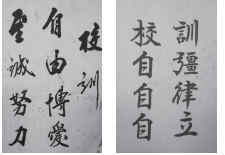 校訓
自由博愛
誠努力
校訓
自彊
自律
自立